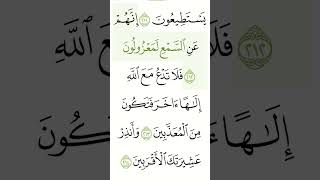 يَسْتَطِيعُونَ ﴿٢١١﴾ إِنَّهُمْ
عَنِ ٱلسَّمْعِ لَمَعْزُولُونَ
﴿٢١٢﴾ فَلَا تَدْعُ مَعَ ٱللَّهِ
إِلَـٰهًا ءَاخَرَ فَتَكُونَ
مِنَ ٱلْمُعَذَّبِينَ ﴿٢١٣﴾ وَأَنذِرْ
عَشِيرَتَكَ ٱلْأَقْرَبِينَ ﴿٢١٤﴾